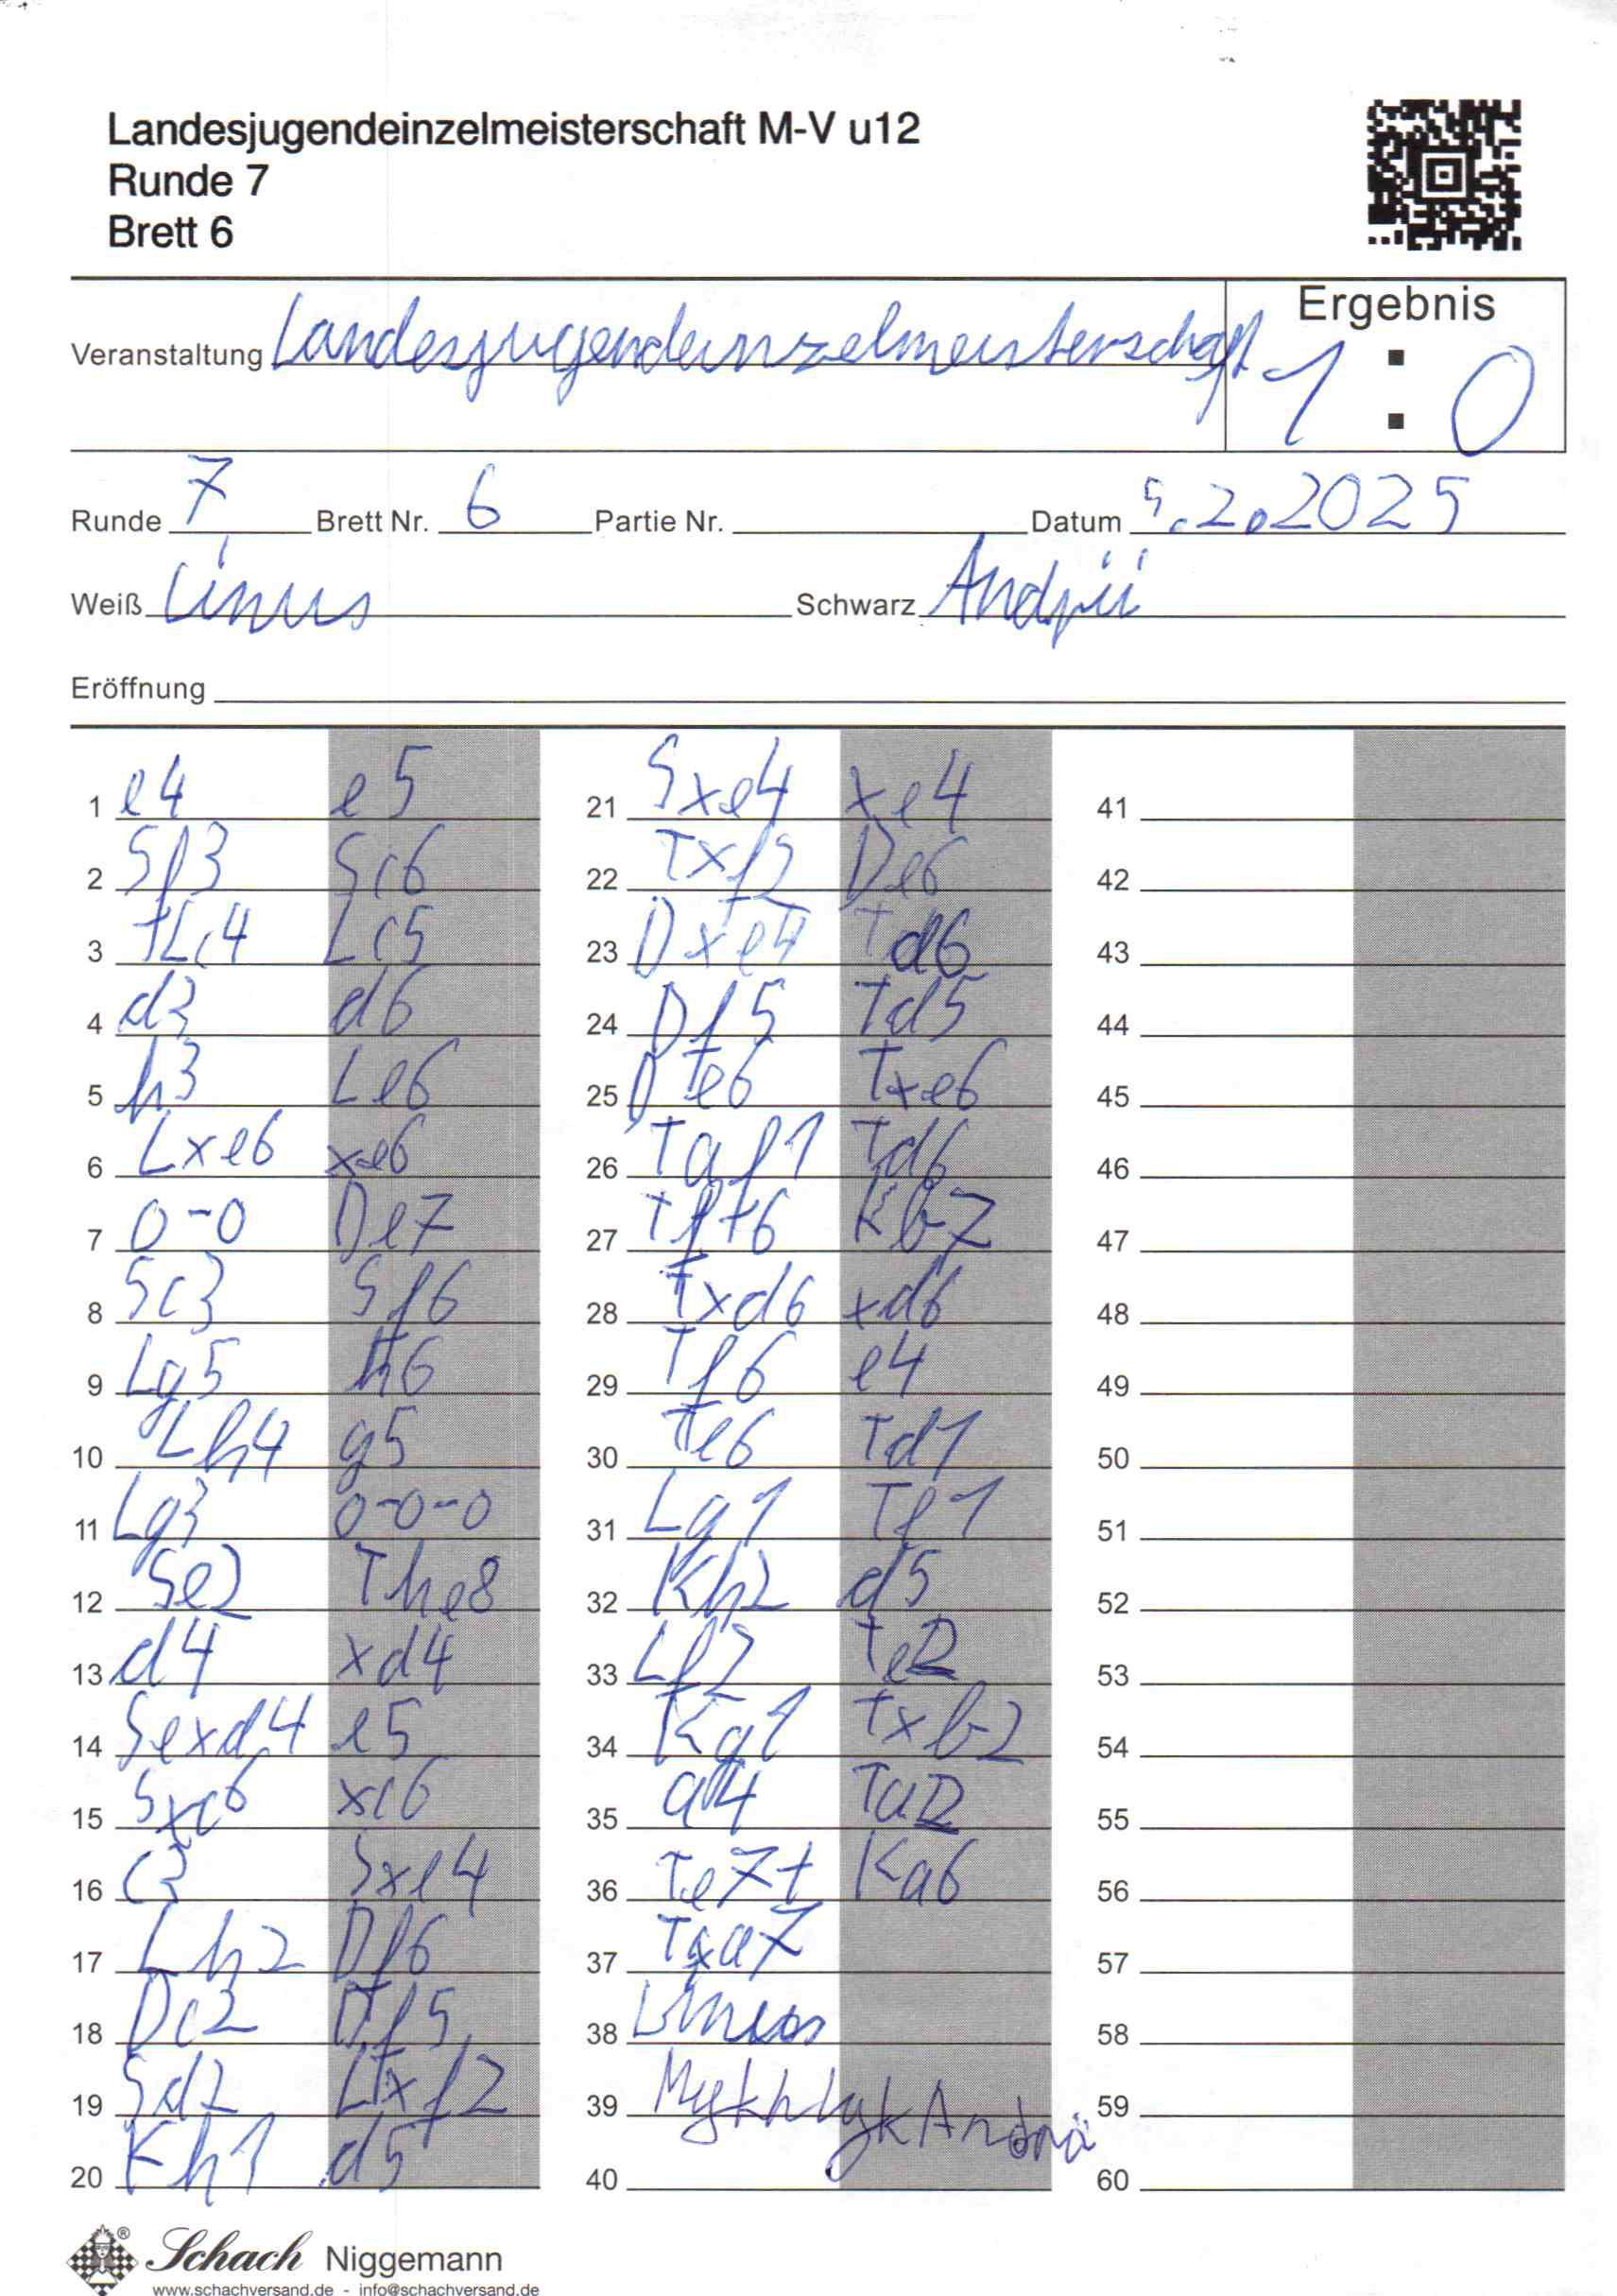 Landesjugendeinzelmeisterschaft M-V u12
Runde 7
Brett 6
Ergebnis
Veranstaltung Landesjugendeinzelmeisterschaft 1 : 0
Runde 7 Brett Nr. 6 Partie Nr. Datum 5.2.2025
Weiß Linus Schwarz Andrii
Eröffnung
1 e4 e5 21 Sxe4 xe4 41
2 Sf3 Sc6 22 Txf2 De6 42
3 Lc4 Lc5 23 Dxe4 Td6 43
4 d3 d6 24 Df5 Td5 44
5 h3 Le6 25 De6 Txe6 45
6 Lxe6 xe6 26 Taf1 Td6 46
7 0-0 De7 27 Tf6 Kb7 47
8 Sc3 Sf6 28 Txd6 xd6 48
9 Lg5 h6 29 Tf6 e4 49
10 Lh4 g5 30 Te6 Td1 50
11 Lg3 0-0-0 31 Lg1 Te1 51
12 Se2 The8 32 Kh2 d5 52
13 d4 xd4 33 Lf2 Te2 53
14 Sexd4 e5 34 Kg1 Txb2 54
15 Sxc6 xc6 35 a4 Ta2 55
16 c3 Sxe4 36 Te7+ Ka6 56
17 Lh2 Df6 37 Txa7 57
18 Dc2 Df5 38 Linus 58
19 Sd2 Lxf2 39 Mykhlyk Andrii 59
20 Kh1 d5 40 60
Schach Niggemann
www.schachversand.de - info@schachversand.de